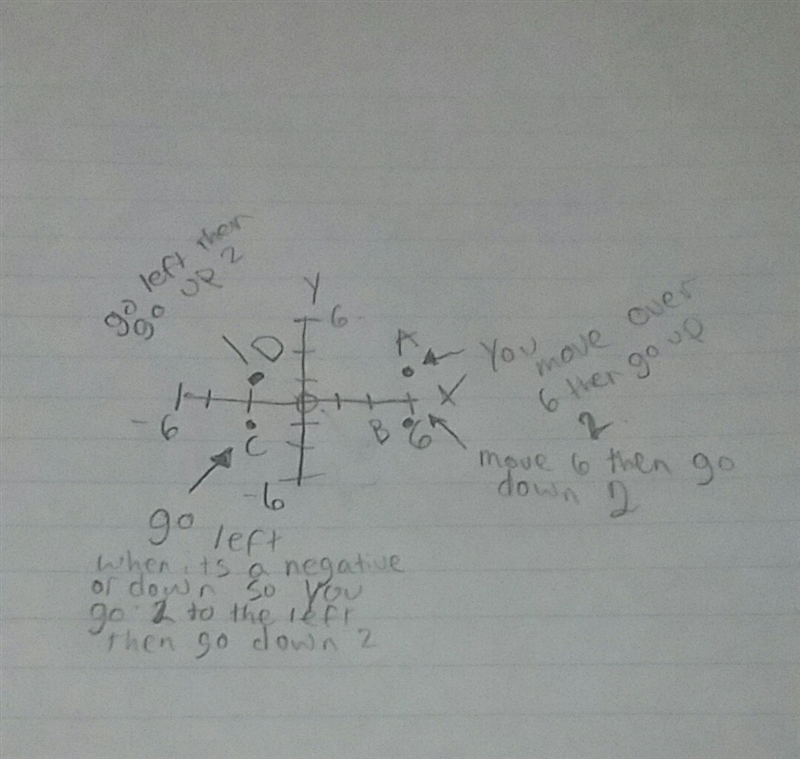 go left then
go up 2
Y
6
A
You move over
6 then go up
2
D
X
-6
B
6
C
move 6 then go
down 2
-6
go left
when its a negative
or down so you
go 2 to the left
then go down 2